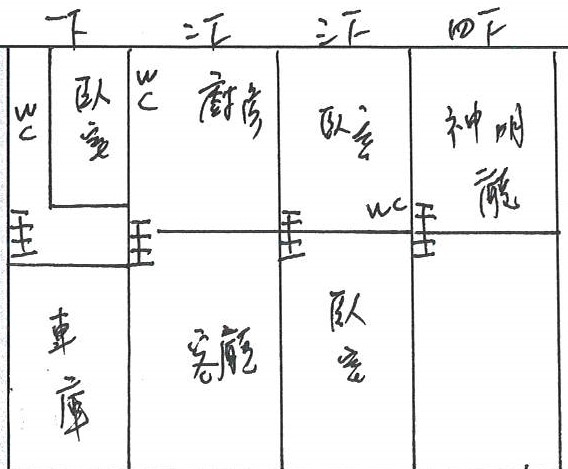 一下 二下 三下 四下
WC 臥室 WC 廚房 臥室 神明廳
WC
車庫 客廳 臥室